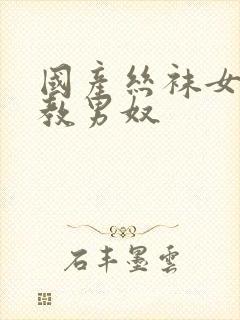 國產絲袜女
教男奴
石丰墨雲